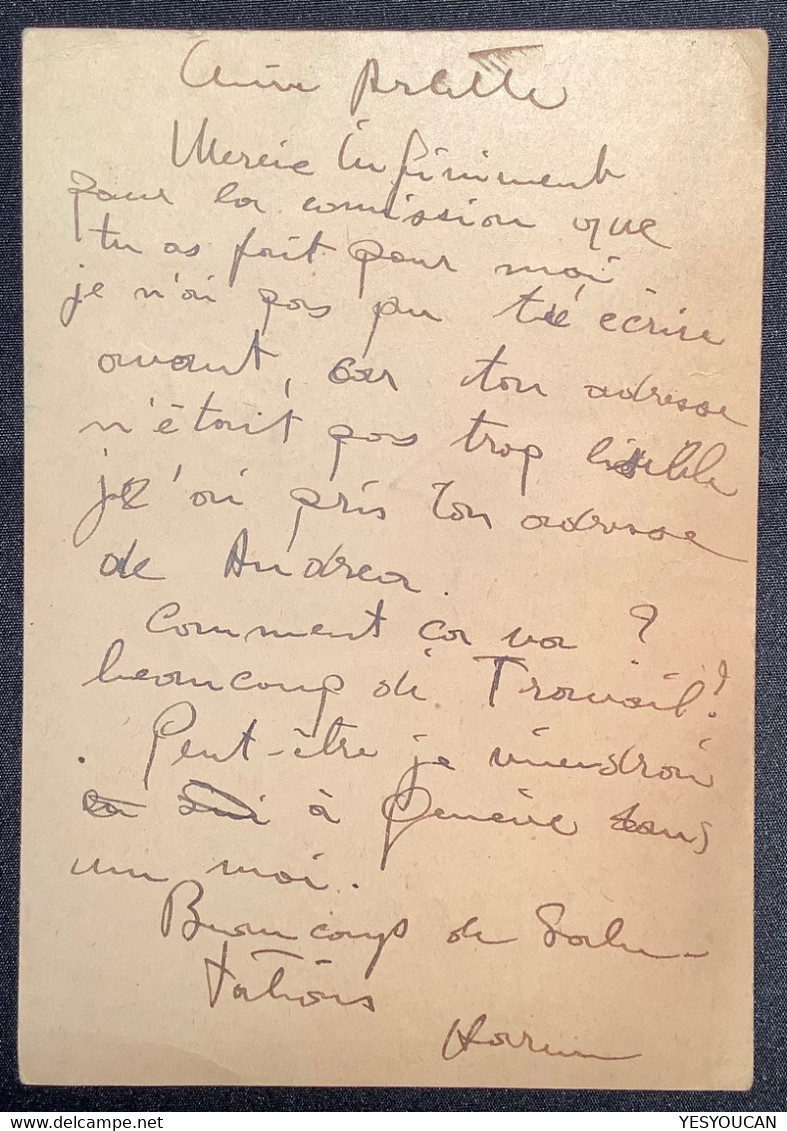 Arlette
Mercie infiniment
pour la comission que
tu as fait pour moi
je n'ai pas pu té écrire
avant, car ton adresse
n'était pas trop lisible
je t'ai pris ton adresse
de Andrea.
Comment ça va ?
beaucoup de Travail?
. Peut-être je viendrai
à Genève dans
un moi.
Beaucoup de Salu-
tations
delcampe.net
YESYOUCAN